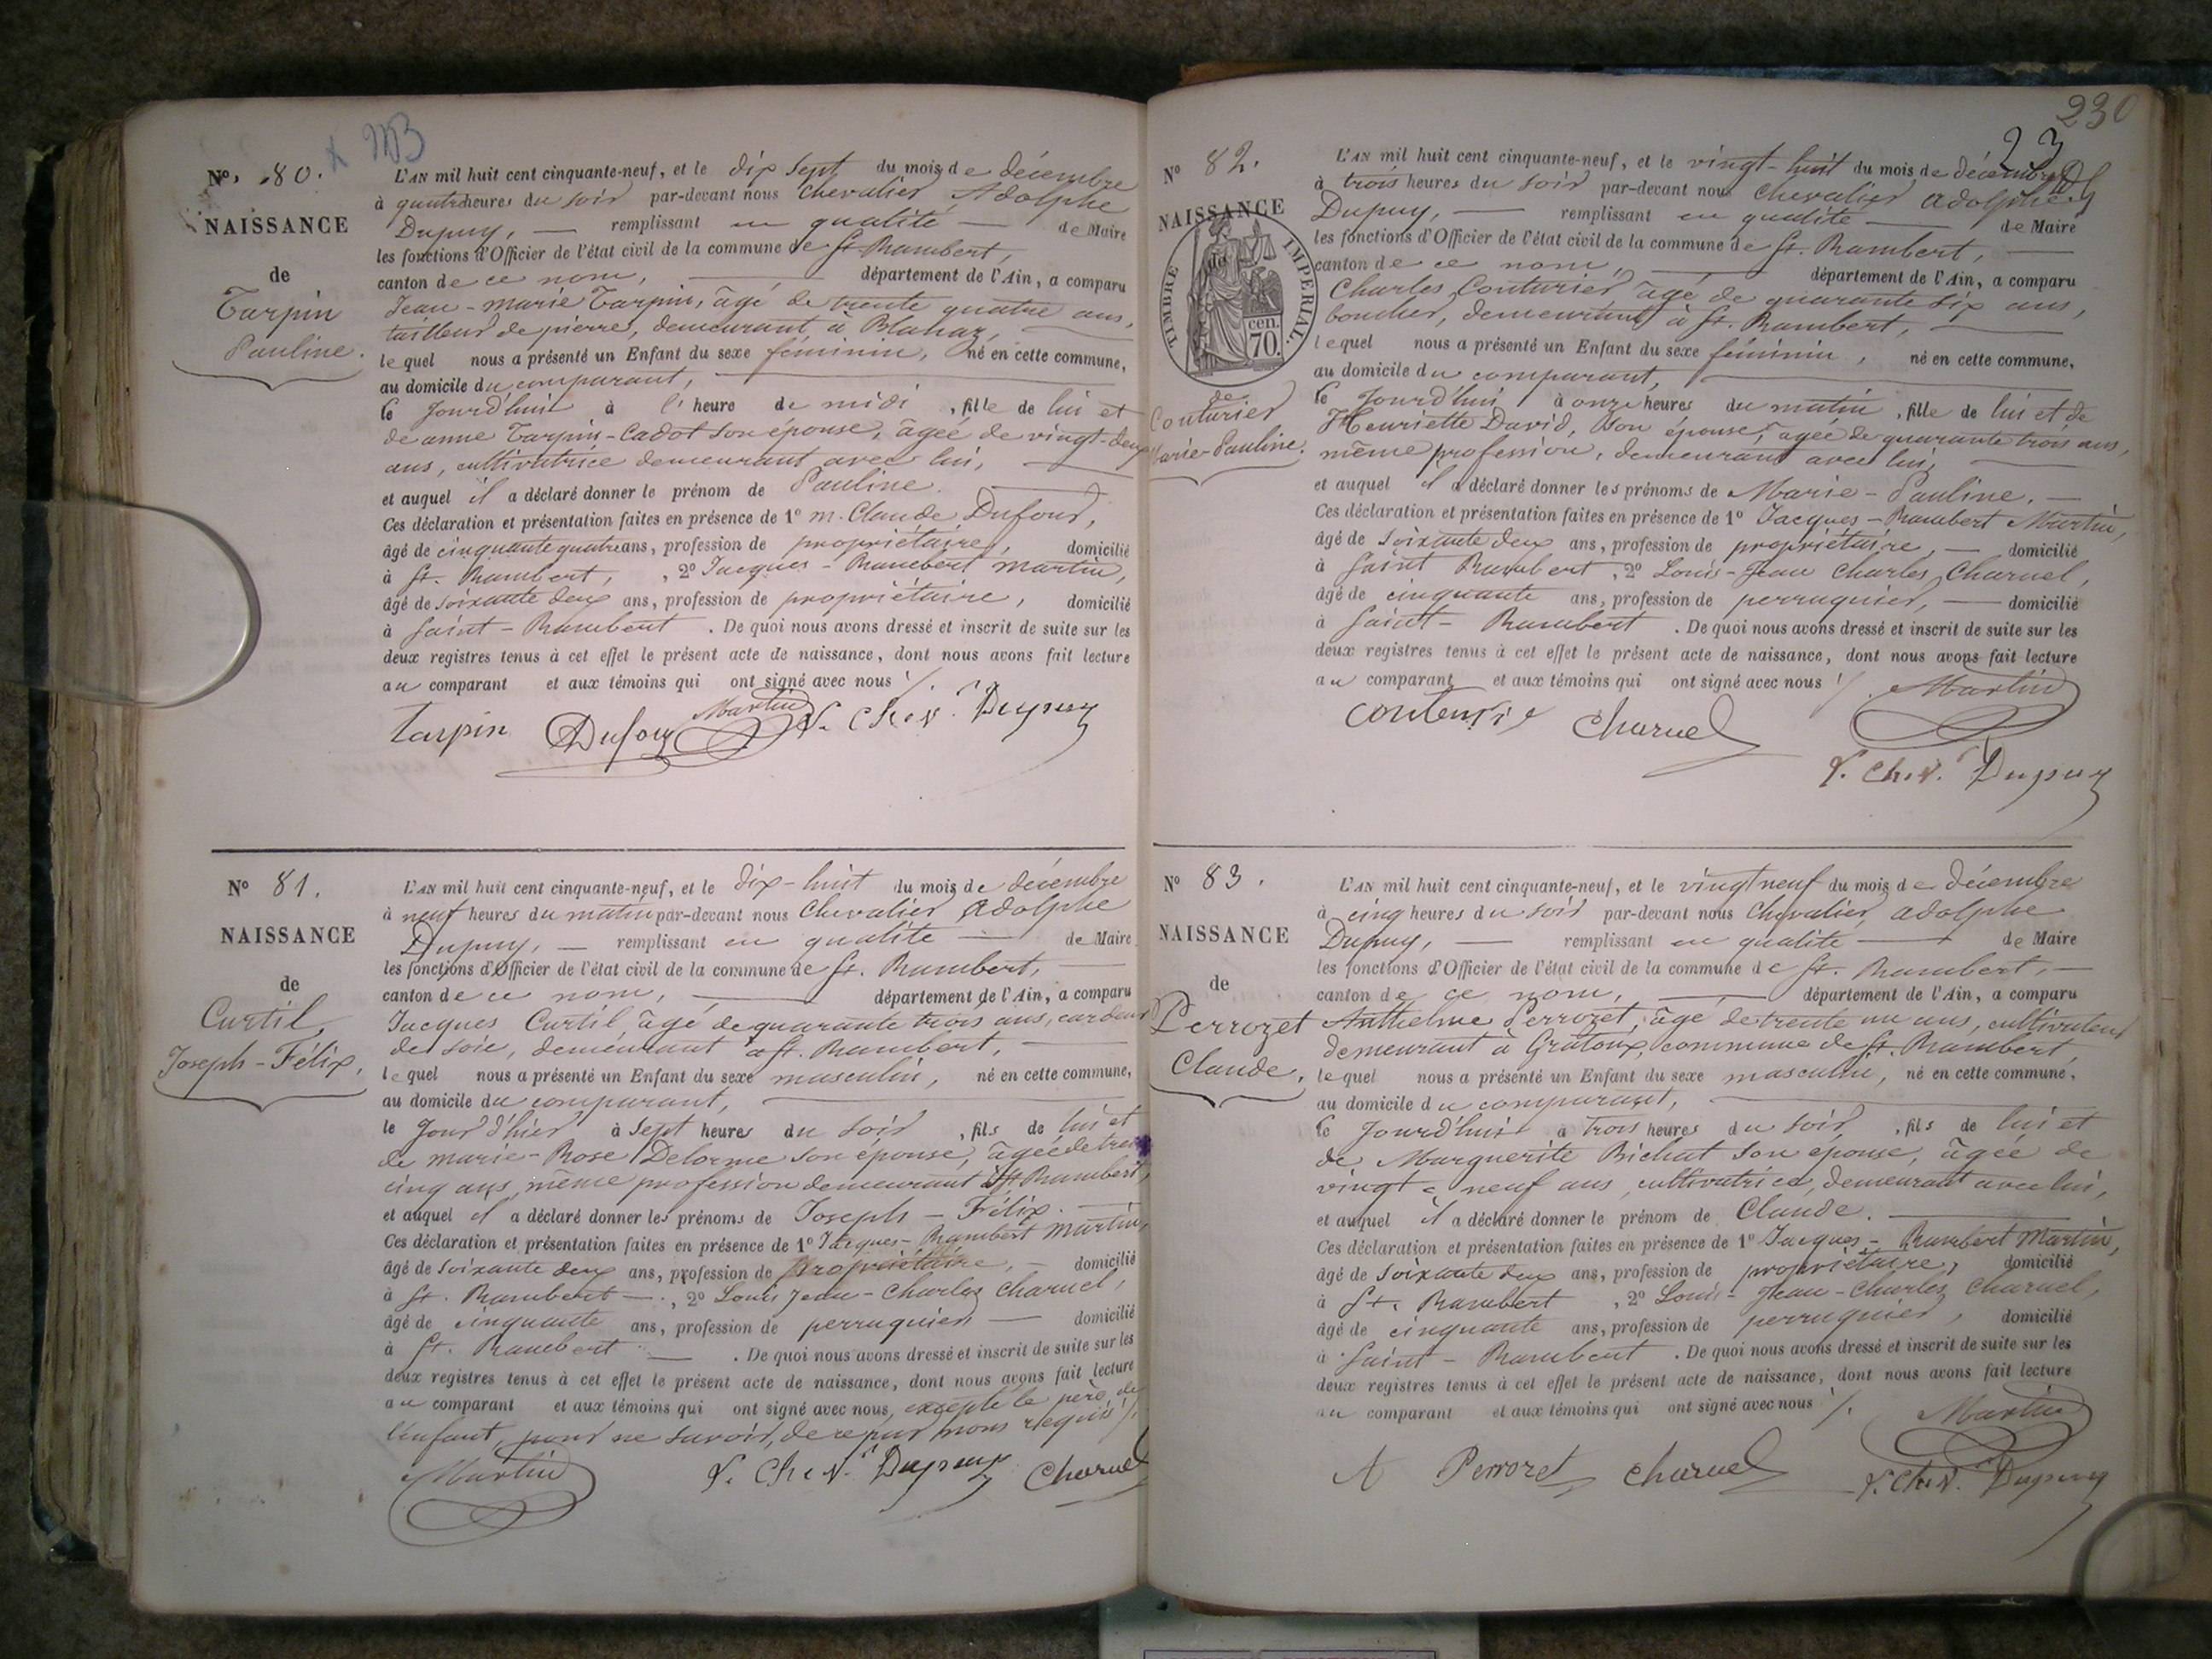 MB
No. 80.
NAISSANCE
de
Tarpin
Pauline.
L'AN mil huit cent cinquante-neuf, et le dix sept du mois de décembre
à quatre heures du soir par-devant nous Chevalier Adolphe
Dupuy, — remplissant en qualité — de Maire
les fonctions d'Officier de l'état civil de la commune de St Rambert,
canton de ce nom, — département de l'Ain, a comparu
Jean-marie Tarpin, âgé de trente quatre ans,
tailleur de pierres, demeurant à Blanaz, —
lequel nous a présenté un Enfant du sexe féminin, né en cette commune,
au domicile du comparant, —
le Jourd'hui à l'heure de midi, fille de lui et
de anne Tarpin-Cadot son épouse, âgée de vingt-deux
ans, cultivatrice demeurant avec lui, —
et auquel il a déclaré donner le prénom de Pauline. —
Ces déclaration et présentation faites en présence de 1° m. Claude Dufour,
âgé de cinquante quatre ans, profession de propriétaire, domicilié
à St. Rambert, , 2° Jacques-Rambert Martin,
âgé de soixante deux ans, profession de propriétaire, domicilié
à Saint-Rambert . De quoi nous avons dressé et inscrit de suite sur les
deux registres tenus à cet effet le présent acte de naissance, dont nous avons fait lecture
au comparant et aux témoins qui ont signé avec nous ./.
Tarpin Dufour Martin Chev. Dupuy
No 81.
NAISSANCE
de
Curtil,
Joseph-Félix,
L'AN mil huit cent cinquante-neuf, et le dix-huit du mois de décembre
à neuf heures du matin par-devant nous Chevalier Adolphe
Dupuy, — remplissant en qualité — de Maire
les fonctions d'Officier de l'état civil de la commune de St. Rambert, —
canton de ce nom, — département de l'Ain, a comparu
Jacques Curtil, âgé de quarante trois ans, cardeur
de soie, demeurant à St. Rambert, —
lequel nous a présenté un Enfant du sexe masculin, né en cette commune,
au domicile du comparant, —
le Jour d'hier à sept heures du soir, fils de lui et
de marie-Rose Delorme son épouse, âgée de trente
cinq ans, même profession demeurant à St Rambert,
et auquel il a déclaré donner les prénoms de Joseph-Félix. —
Ces déclaration et présentation faites en présence de 1° Jacques-Rambert Martin,
âgé de soixante deux ans, profession de propriétaire, — domicilié
à St. Rambert —, 2° Louis Jean-Charles Charuel,
âgé de cinquante ans, profession de perruquier — domicilié
à St. Rambert — . De quoi nous avons dressé et inscrit de suite sur les
deux registres tenus à cet effet le présent acte de naissance, dont nous avons fait lecture
au comparant et aux témoins qui ont signé avec nous, excepté le père de
l'enfant, pour ne savoir, de ce par nous requis ./.
Martin Chev. Dupuy Charuel
230
23
No 82.
NAISSANCE
TIMBRE IMPÉRIAL.
cen.
70.
de
Couturier
Marie-Pauline.
L'AN mil huit cent cinquante-neuf, et le vingt-huit du mois de décembre
à trois heures du soir par-devant nous Chevalier Adolphe
Dupuy, — remplissant en qualité — de Maire
les fonctions d'Officier de l'état civil de la commune de St. Rambert, —
canton de ce nom, — département de l'Ain, a comparu
Charles Couturier âgé de quarante six ans,
boucher, demeurant à St. Rambert, —
lequel nous a présenté un Enfant du sexe féminin, né en cette commune,
au domicile du comparant, —
le Jourd'hui à onze heures du matin, fille de lui et de
Henriette David, son épouse, âgée de quarante trois ans,
même profession, demeurant avec lui, —
et auquel il a déclaré donner les prénoms de Marie-Pauline. —
Ces déclaration et présentation faites en présence de 1° Jacques-Rambert Martin,
âgé de soixante deux ans, profession de propriétaire, — domicilié
à Saint Rambert, 2° Louis-Jean Charles Charuel,
âgé de cinquante ans, profession de perruquier, — domicilié
à Saint-Rambert . De quoi nous avons dressé et inscrit de suite sur les
deux registres tenus à cet effet le présent acte de naissance, dont nous avons fait lecture
au comparant et aux témoins qui ont signé avec nous ./. Martin
Couturier Charuel
Chev. Dupuy
No 83.
NAISSANCE
de
Perrozet
Claude.
L'AN mil huit cent cinquante-neuf, et le vingt neuf du mois de décembre
à cinq heures du soir par-devant nous Chevalier Adolphe
Dupuy, — remplissant en qualité — de Maire
les fonctions d'Officier de l'état civil de la commune de St. Rambert, —
canton de ce nom, — département de l'Ain, a comparu
Anthelme Perrozet, âgé de trente un ans, cultivateur
demeurant à Gratoux, commune de St. Rambert,
lequel nous a présenté un Enfant du sexe masculin, né en cette commune,
au domicile du comparant, —
le Jourd'hui à trois heures du soir, fils de lui et
de Marguerite Bichat son épouse, âgée de
vingt-neuf ans, cultivatrice, demeurant avec lui,
et auquel il a déclaré donner le prénom de Claude. —
Ces déclaration et présentation faites en présence de 1° Jacques-Rambert Martin,
âgé de soixante deux ans, profession de propriétaire, domicilié
à St. Rambert , 2° Louis-Jean-Charles Charuel,
âgé de cinquante ans, profession de perruquier, domicilié
à Saint-Rambert . De quoi nous avons dressé et inscrit de suite sur les
deux registres tenus à cet effet le présent acte de naissance, dont nous avons fait lecture
au comparant et aux témoins qui ont signé avec nous ./. Martin
A Perrozet Charuel Chev. Dupuy